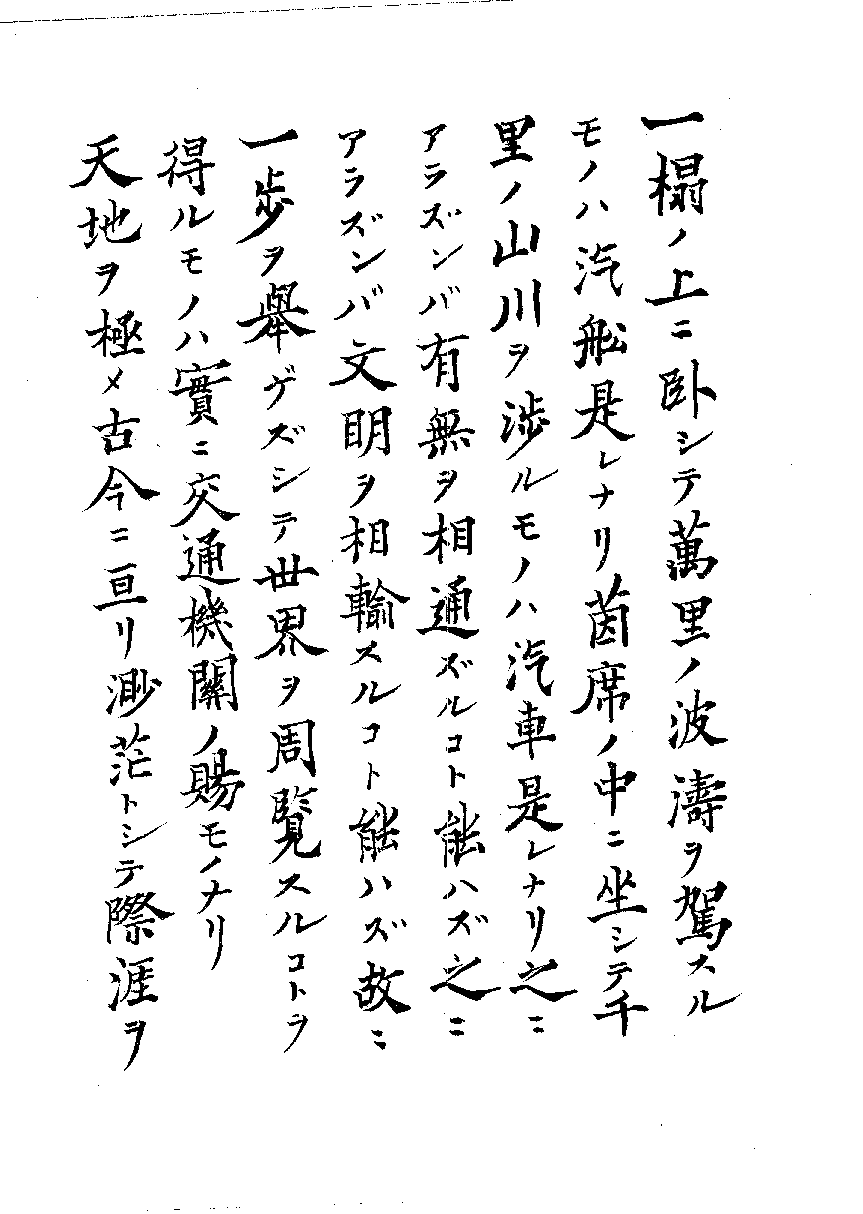 一榻ノ上ニ臥シテ萬里ノ波濤ヲ駕スル
モノハ汽船是レナリ茵席ノ中ニ坐シテ千
里ノ山川ヲ渉ルモノハ汽車是レナリ之ニ
アラズンバ有無ヲ相通ズルコト能ハズ之ニ
アラズンバ文明ヲ相輸スルコト能ハズ故ニ
一歩ヲ擧ゲズシテ世界ヲ周覽スルコトヲ
得ルモノハ實ニ交通機關ノ賜モノナリ
天地ヲ極メ古今ニ亘リ渺茫トシテ際涯ヲ